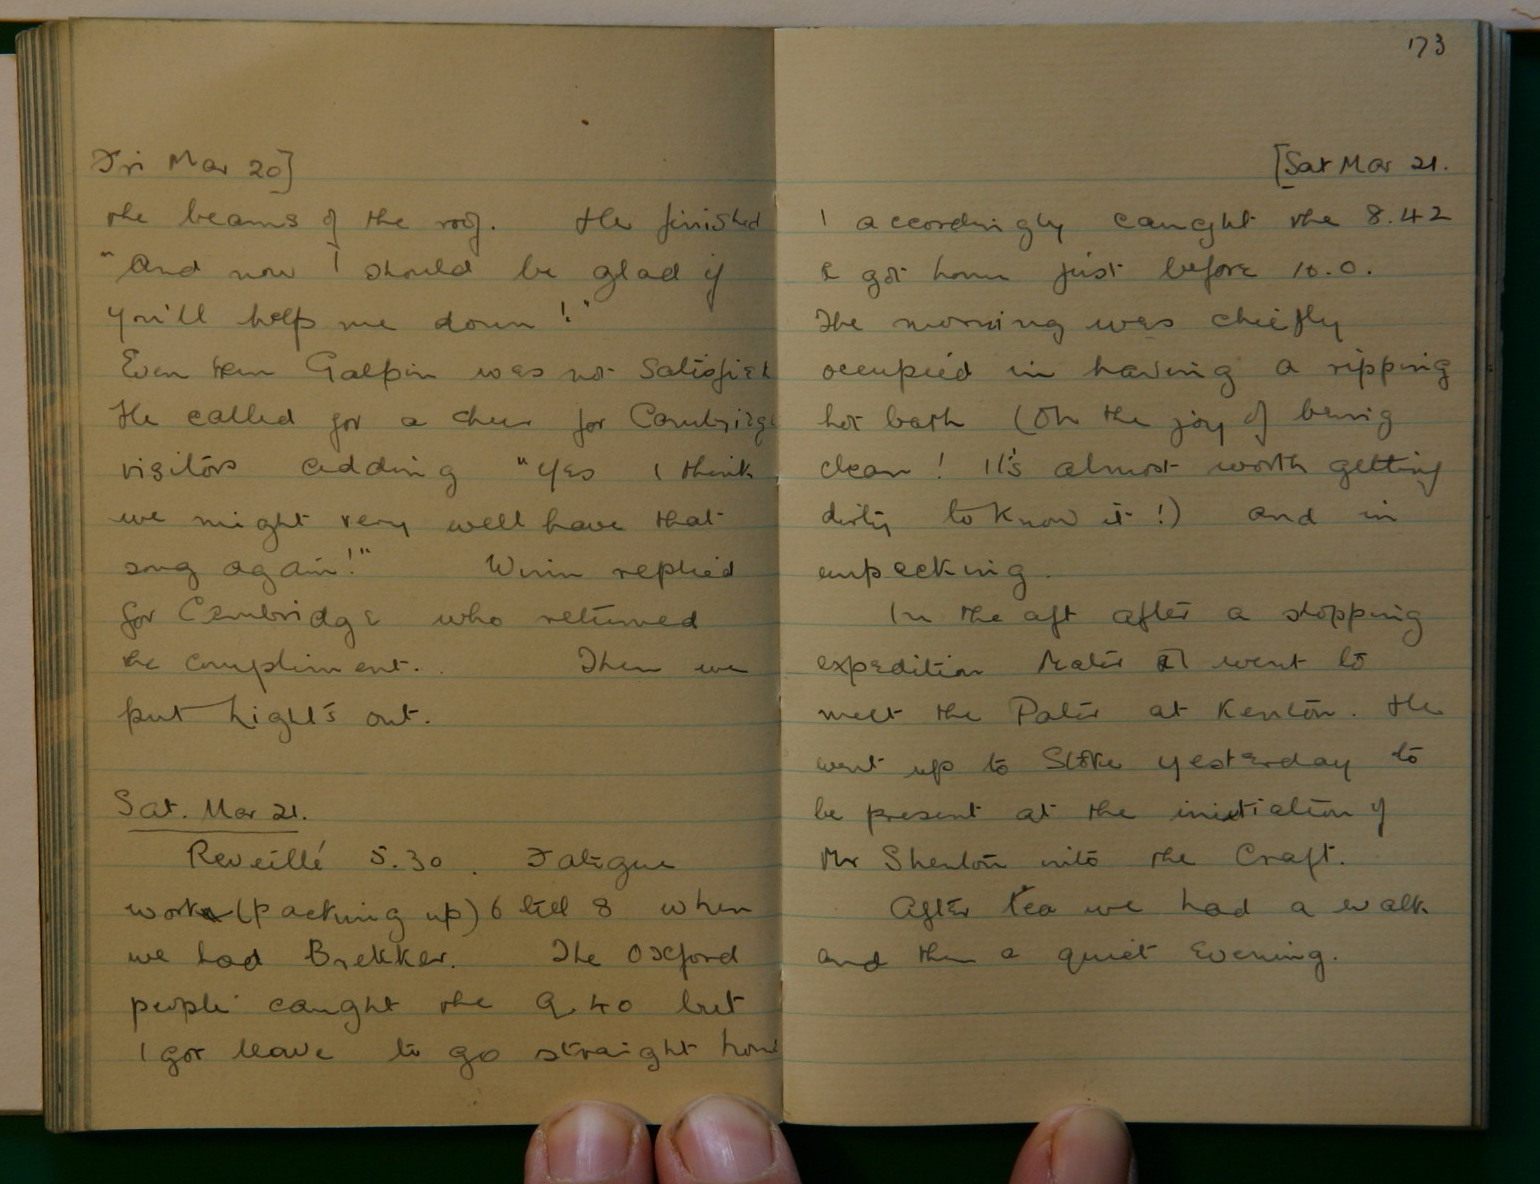 Fri Mar 20]
the beams of the roof. He finished
"And now I should be glad if
you'll help me down!"
Even then Galpin was not satisfied
He called for a cheer for Cambridge
visitors adding "Yes I think
we might very well have that
song again!" Winn replied
for Cambridge who returned
the compliment. Then we
put Lights out.
Sat. Mar 21.
Reveillé 5.30. Fatigue
work (packing up) 6 till 8 when
we had Brekker. The Oxford
people caught the 9.40 but
I got leave to go straight home
173
[Sat Mar 21.
I accordingly caught the 8.42
& got home just before 10.0.
The morning was chiefly
occupied in having a ripping
hot bath (Oh the joy of being
clean! It's almost worth getting
dirty to know it!) and in
unpacking.
In the aft after a shopping
expedition Mater & I went to
meet the Pater at Kenton. He
went up to Stoke yesterday to
be present at the initiation of
Mr Shenton into the Craft.
After tea we had a walk
and then a quiet evening.